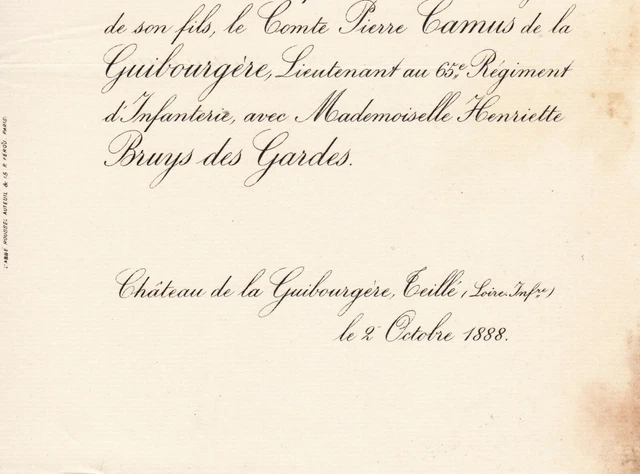 de son fils, le Comte Pierre Camus de la
Guibourgère, Lieutenant au 65e. Régiment
d'Infanterie, avec Mademoiselle Henriette
Bruys des Gardes.
Château de la Guibourgère, Teillé, (Loire-Infre.)
le 2 Octobre 1888.
L'ABBÉ ROUSSEL AUTEUIL & 15 R. FÉROU PARIS.